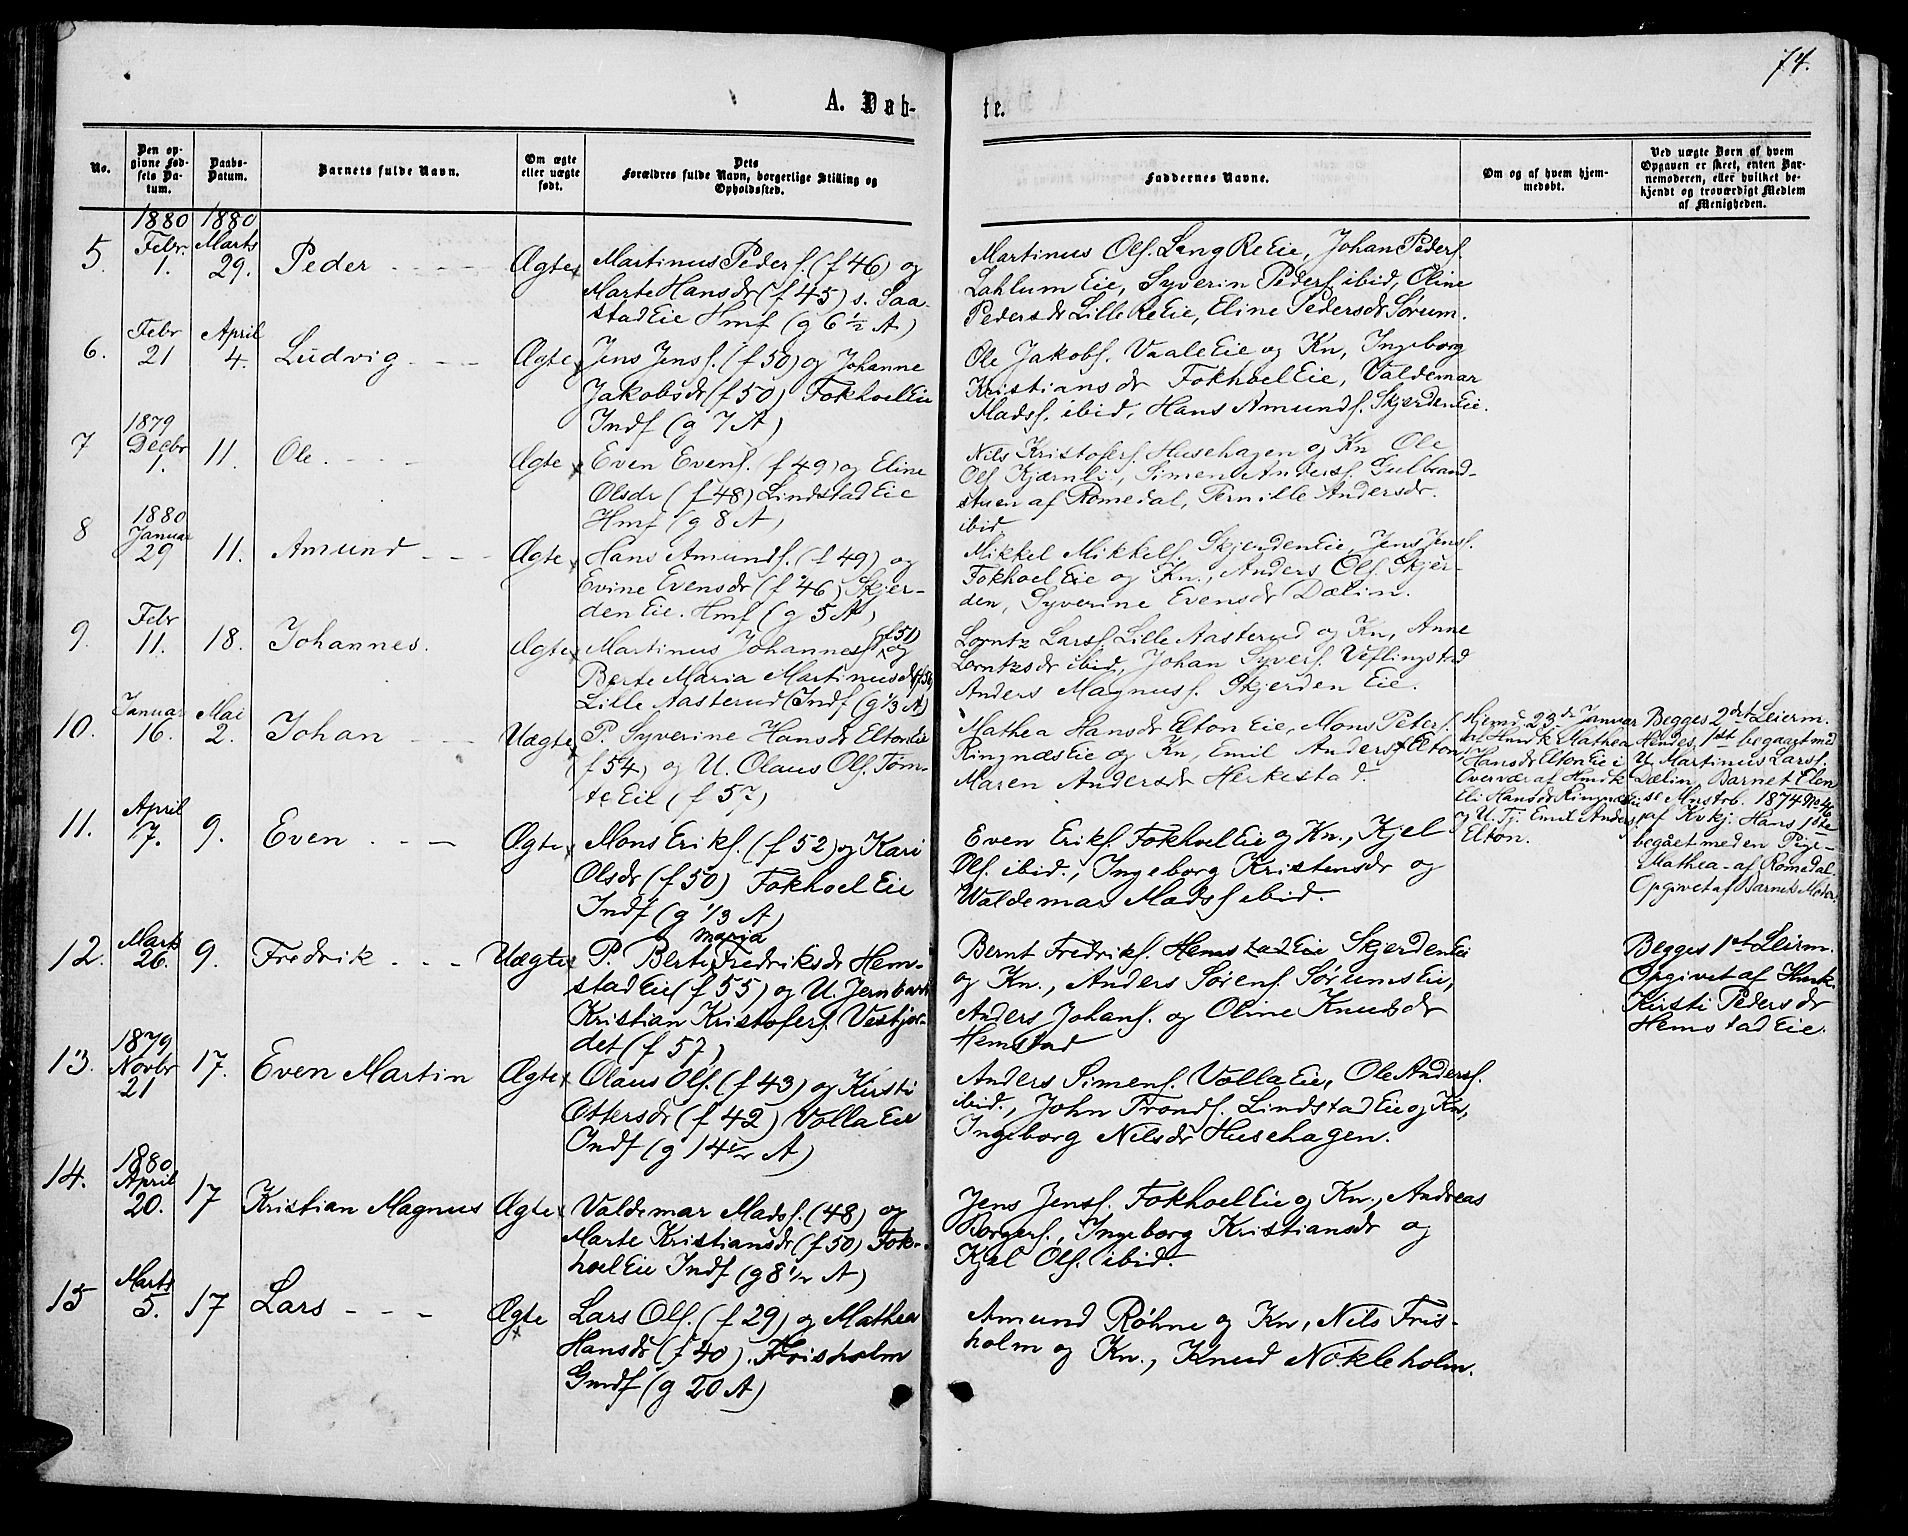 74.
A. Døb-
te.
No.
Den op-
givne Fød-
sels Da-
tum.
Daabs-
Datum.
Barnets fulde Navn.
Om ægte
eller uægte
født.
Dets
Forældres fulde Navn, borgerlige Stilling og
Opholdssted.
Faddernes Navne.
Om og af hvem hjem-
medøbt.
Ved uægte Børn af hvem
Opgaven er skeet, enten Bar-
nemoderen, eller hvilket be-
kjendt og troværdigt Medlem
af Menigheden.
1880 1880
5. Febr. 1. Marts 29. Peder Ægte
Martinus Peders. (f 46) og
Marte Hansdr (f 45) s. Saa-
stadEie Hmf (g 6 1/2 A)
Martinus Ols. Lang ReEie, Johan Peders.
Lahlum Eie, Syverin Peders ibid, Oline
Pedersdr Lille ReEie, Eline Pedersdr Sørum.
6. Febr 21 April 4. Ludvig Ægte
Jens Jens. (f 50) og Johanne
Jakobsdr (f 50) FokhoelEie
Indf (g 7 A)
Ole Jakobs. VaaleEie og Kn, Ingeborg
Kristiansdr FokhoelEie, Valdemar
Mads. ibid, Hans Amunds. SkjerdenEie.
7 1879 Decbr 1. 11. Ole. Ægte
Even Evens. (f 49) og Eline
Olsdr (f 48) LindstadEie
Hmf (g 8 A)
Nils Kristofers. Husehagen og Kn Ole
Ols Kjærnli, Simen Anders. Gulbrand-
stuen af Romedal, Pernille Andersdr.
ibid
8 1880 Januar 29 11. Amund Ægte
Hans Amunds. (f 49) og
Evine Evensdr (f 46) Skjer-
denEie. Hmf (g 5 A)
Mikkel Mikkels. SkjerdenEie, Jens Jens.
Fokhoel Eie og Kn., Anders Ols. Skjer-
den, Syverine Evensdr Dælin.
9. Febr 11. 18. Johannes. Ægte
Martinus Johanness (f 51) og
Berte Maria Martinusdr (f 56)
Lille Aasterud Indf (g 1/3 A)
Lorntz Lars. Lille Aasterud og Kn, Anne
Lorntzsdr ibid, Johan Syvers. Veflingstad
Anders Magnus. Skjerden Eie.
10. Januar 16. Mai 2. Johan Uægte
P. Syverine Hansdr EltonEie
(f 54) og U. Olaus Ols. Tom-
te Eie (f 57)
Mathea Hansdr Elton Eie, Mons Peters.
RingnæsEie og Kn, Emil Anders. Elton
Maren Andersdr Herkestad.
Hjemd. 23de Januar
af Hmdk Mathea
Hansdr Elton Eie i
Overvær af Hmdk
Eli Hansdr RingnæsEie
og U. Tj. Emil Anders.
Elton.
Begges 2det Leierm.
Hendes 1ste begaaet med
U. Martinus Lars.
Dælin, Barnet Elen
se Mnstrb. 1874 No 46
af Kvkj. Hans 1ste
begået med en Pige
Mathea af Romedal.
Opgivet af Barnets Moder.
11. April 7. 9. Even Ægte
Mons Eriks. (f 52) og Kari
Olsdr (f 50) Fokhoel Eie
Indf (g 1/3 A)
Even Eriks. Fokhoel Eie og Kn., Kjel
Ols. ibid., Ingeborg Kristensdr og
Waldemar Mads ibid.
12. Marts 26. 9. Fredrik Uægte
P. Berte Maria Fredriksdr Hem-
stadEie (f 55) og U. Jernbarb
Kristian Kristofers. Vestjor-
det (f 57)
Bernt Fredriks. HemstadEie SkjerdenEie
og Kn., Anders Sørens. SørumsEie,
Anders Johans. og Oline Knudsdr
Hemstad
Begges 1ste Leierm.
Opgivet af Hmdk.
Kirsti Pedersdr
Hemstad Eie.
13. 1879 Novbr 21 17. Even Martin Ægte
Olaus Ols. (f 43) og Kirsti
Ottersdr (f 42) VollaEie
Indf (g 14 1/2 A)
Anders Simens. Volla Eie, Ole Anders.
ibid., John Tronds. LindstadEie og Kn,
Ingeborg Nilsdr Husehagen.
14. 1880 April 20. 17 Kristian Magnus Ægte
Valdemar Mads. (48) og
Marte Kristiansdr (f 50) Fok-
hoel Eie Indf (g 8 1/2 A)
Jens Jens. Fokhoel Eie og Kn., Andreas
Borgers., Ingeborg Kristiansdr og
Kjel Ols. ibid.
15 Marts 5. 17 Lars Ægte
Lars Ols. (f 29) og Mathea
Hansdr (f 40). Frisholm
Gmdf (g 20 A)
Amund Røhne og Kn, Nils Fris-
holm og Kn., Knud Nøkleholm.